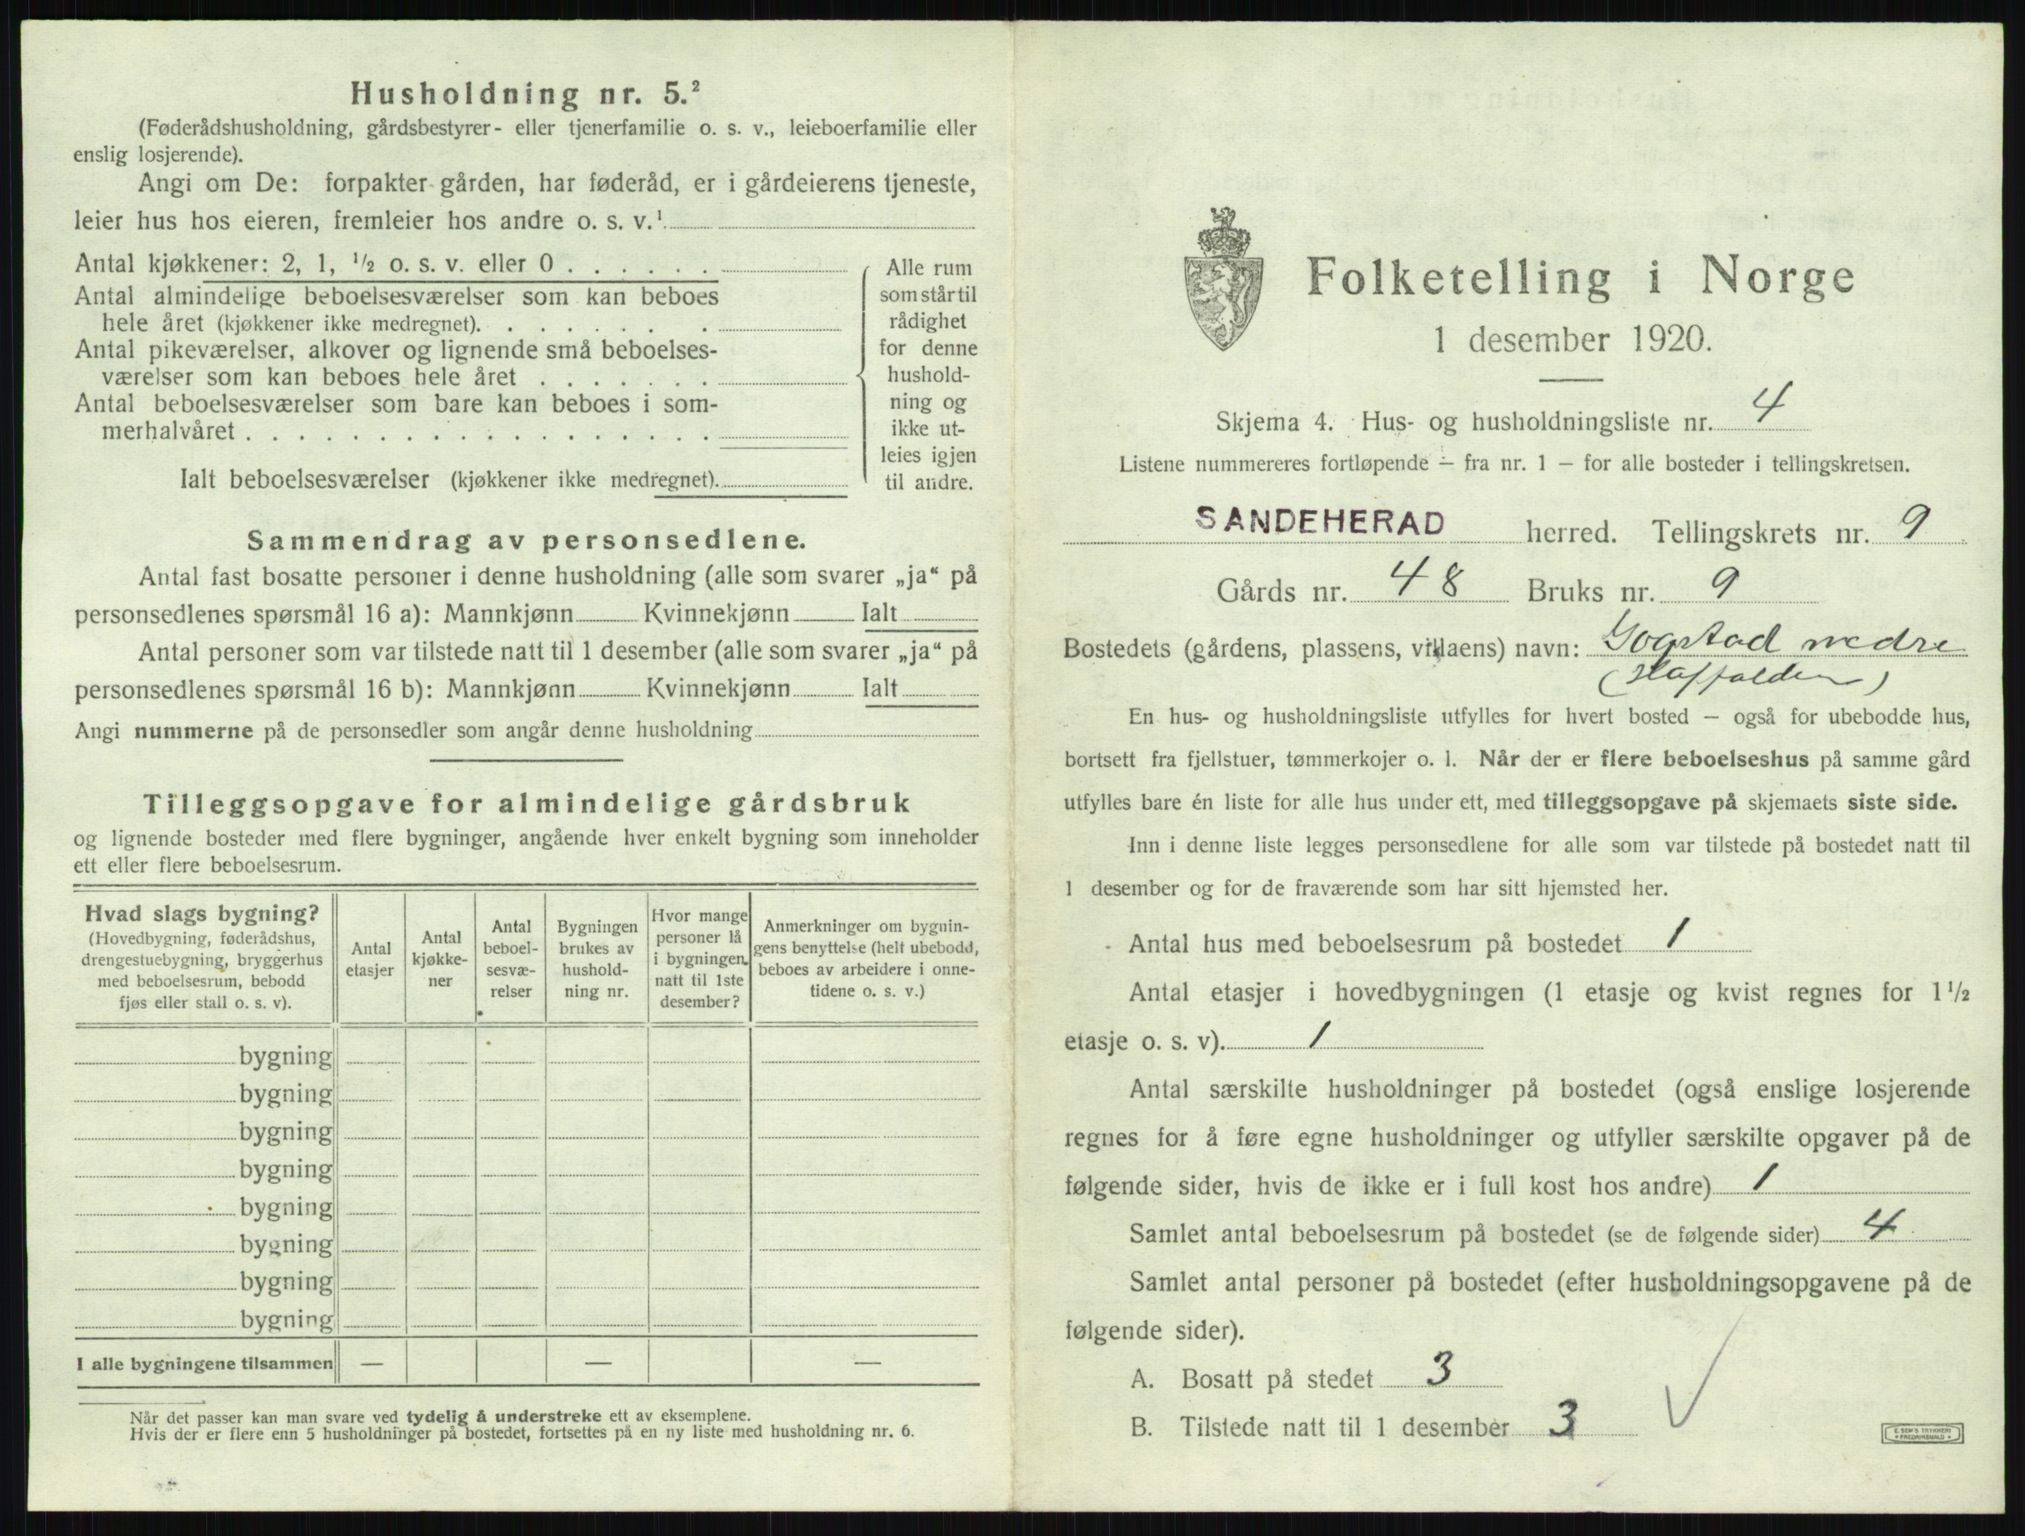 Husholdning nr. 5.²
(Føderådshusholdning, gårdsbestyrer- eller tjenerfamilie o. s. v., leieboerfamilie eller
enslig losjerende).
Angi om De: forpakter gården, har føderåd, er i gårdeierens tjeneste,
leier hus hos eieren, fremleier hos andre o. s. v.¹
Antal kjøkkener: 2, 1, ½ o. s. v. eller 0 . . . . . .
Antal almindelige beboelsesværelser som kan beboes
hele året (kjøkkener ikke medregnet). . . . . . . .
Antal pikeværelser, alkover og lignende små beboelses-
værelser som kan beboes hele året . . . . . . .
Antal beboelsesværelser som bare kan beboes i som-
merhalvåret . . . . . . . . . . . . . . . . . .
Ialt beboelsesværelser (kjøkkener ikke medregnet).
Alle rum
som står til
rådighet
for denne
hushold-
ning og
ikke ut-
leies igjen
til andre.
Sammendrag av personsedlene.
Antal fast bosatte personer i denne husholdning (alle som svarer „ja“ på
personsedlenes spørsmål 16 a): Mannkjønn Kvinnekjønn Ialt
Antal personer som var tilstede natt til 1 desember (alle som svarer „ja“ på
personsedlenes spørsmål 16 b): Mannkjønn Kvinnekjønn Ialt
Angi nummerne på de personsedler som angår denne husholdning
Tilleggsopgave for almindelige gårdsbruk
og lignende bosteder med flere bygninger, angående hver enkelt bygning som inneholder
ett eller flere beboelsesrum.
Hvad slags bygning?
(Hovedbygning, føderådshus,
drengestuebygning, bryggerhus
med beboelsesrum, bebodd
fjøs eller stall o. s. v).
Antal
etasjer
Antal
kjøkke-
ner
Antal
beboel-
sesvæ-
relser
Bygningen
brukes av
hushold-
ning nr.
Hvor mange
personer lå
i bygningen
natt til 1ste
desember?
Anmerkninger om bygnin-
gens benyttelse (helt ubebodd,
beboes av arbeidere i onne-
tidene o. s. v.)
bygning
bygning
bygning
bygning
bygning
bygning
bygning
bygning
I alle bygningene tilsammen — — —
Når det passer kan man svare ved tydelig å understreke ett av eksemplene.
Hvis der er flere enn 5 husholdninger på bostedet, fortsettes på en ny liste med husholdning nr. 6.
Folketelling i Norge
1 desember 1920.
Skjema 4. Hus- og husholdningsliste nr. 4
Listene nummereres fortløpende – fra nr. 1 – for alle bosteder i tellingskretsen.
SANDEHERAD herred. Tellingskrets nr. 9
Gårds nr. 48 Bruks nr. 9
Bostedets (gårdens, plassens, villaens) navn: Gogstad nedre
En hus- og husholdningsliste utfylles for hvert bosted – også for ubebodde hus,
bortsett fra fjellstuer, tømmerkojer o. l. Når der er flere beboelseshus på samme gård
utfylles bare én liste for alle hus under ett, med tilleggsopgave på skjemaets siste side.
Inn i denne liste legges personsedlene for alle som var tilstede på bostedet natt til
1 desember og for de fraværende som har sitt hjemsted her.
Antal hus med beboelsesrum på bostedet 1
Antal etasjer i hovedbygningen (1 etasje og kvist regnes for 1½
etasje o. s. v). 1
Antal særskilte husholdninger på bostedet (også enslige losjerende
regnes for å føre egne husholdninger og utfyller særskilte opgaver på de
følgende sider, hvis de ikke er i full kost hos andre) 1
Samlet antal beboelsesrum på bostedet (se de følgende sider) 4
Samlet antal personer på bostedet (efter husholdningsopgavene på de
følgende sider).
A. Bosatt på stedet 3
B. Tilstede natt til 1 desember 3
E. SEM'S TRYKKERI
FREDRIKSHALD